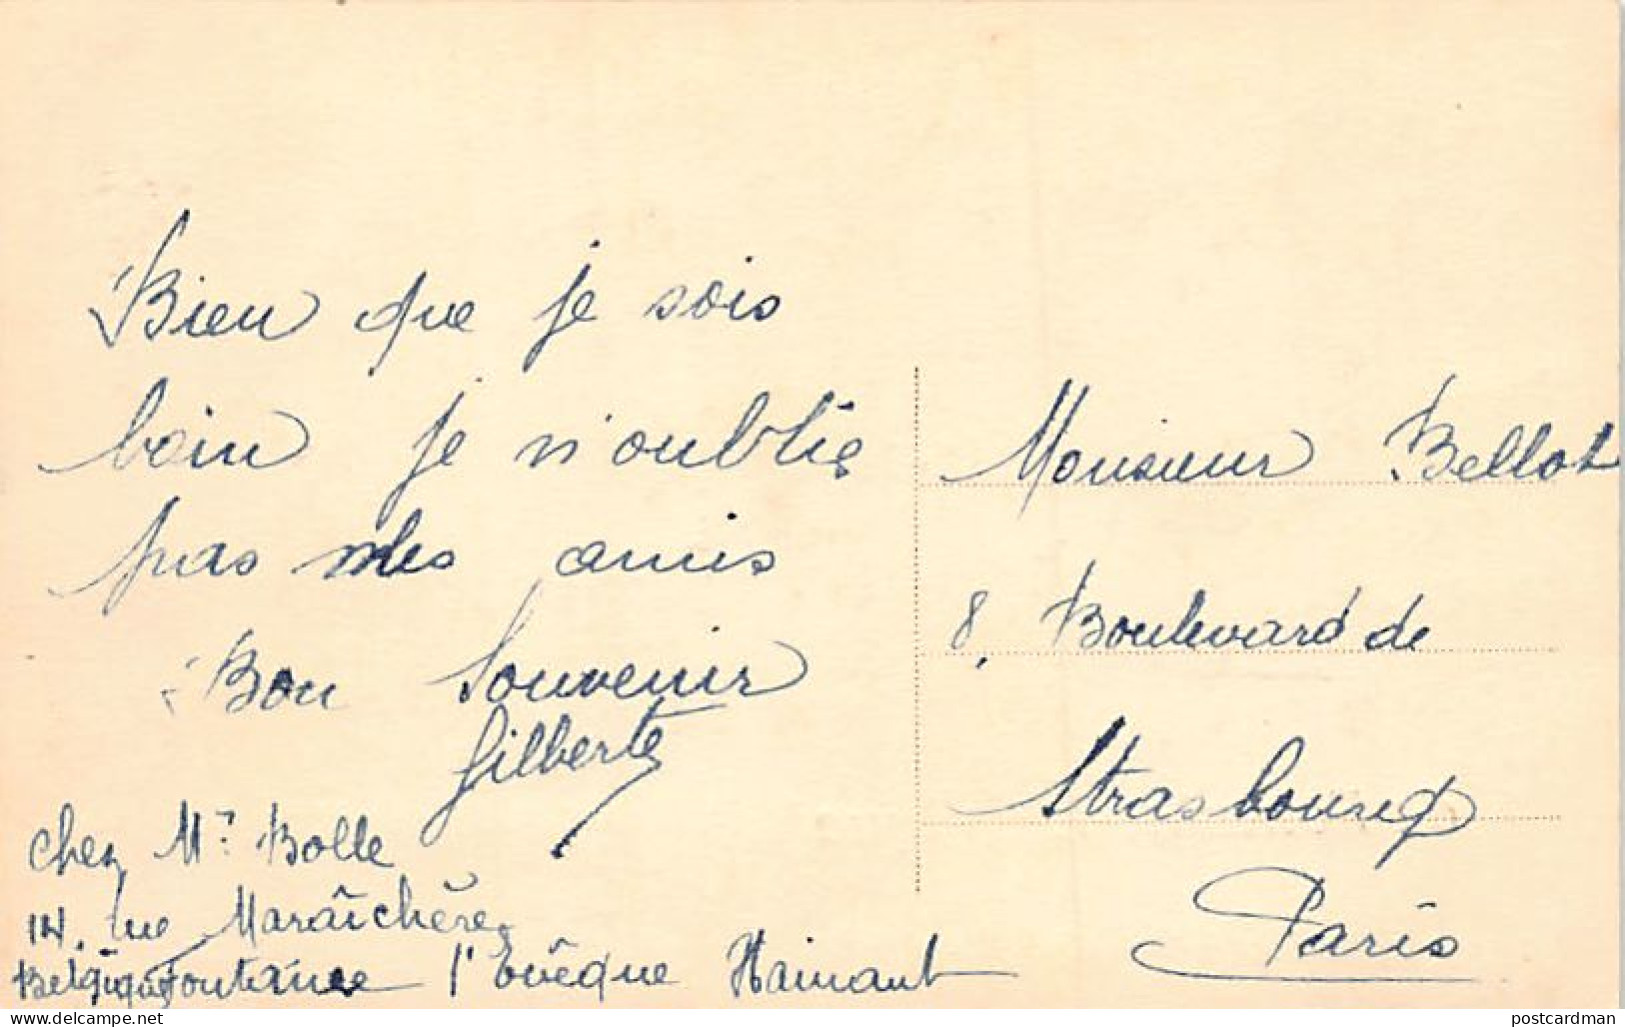 Bien que je sois
loin je n'oublie
pas mes amis
Bon Souvenir
Gilberte
chez Mr Bolle
14, rue Maraîchère
Belgique Fontaine l'Evêque Hainaut
Monsieur Bellot
8, Boulevard de
Strasbourg
Paris
www.delcampe.net
postcardman